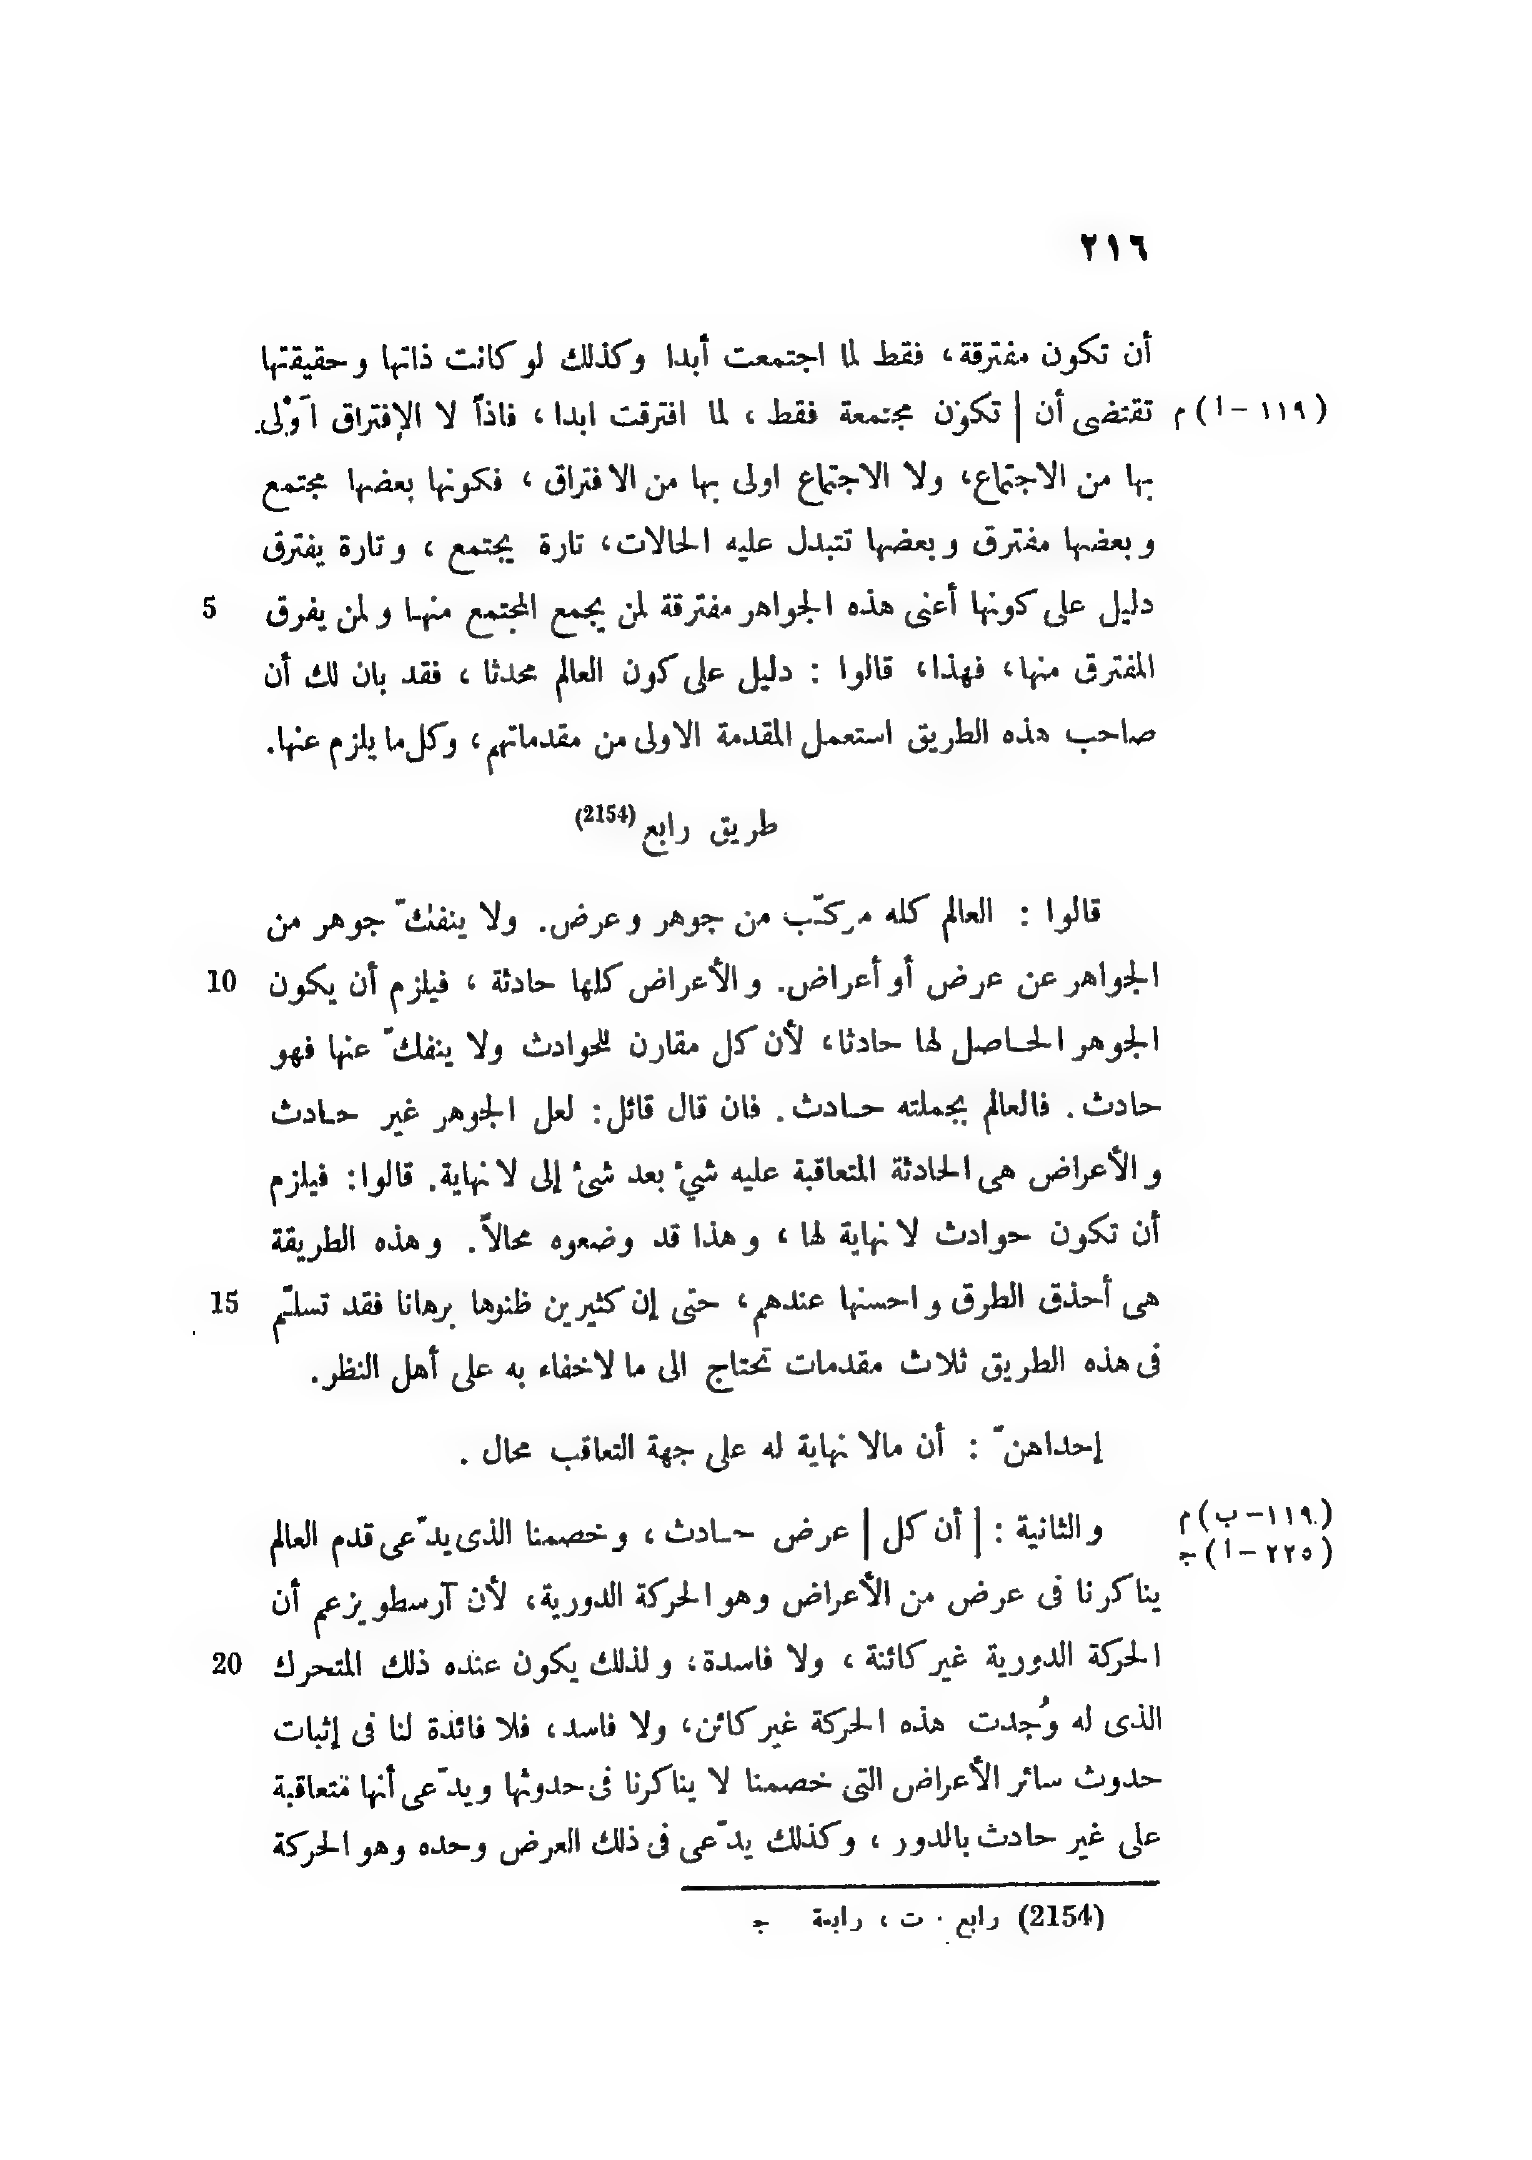 ٢١٦
أن تكون مفترقة، فقط لما اجتمعت أبدا وكذلك لو كانت ذاتها وحقيقتها
(١١٩ - ا) م تقتضى أن | تكون مجتمعة فقط، لما افترقت ابدا، فاذاً لا الإفتراق آوْلى
بها من الاجتماع، ولا الاجتماع اولى بها من الافتراق، فكونها بعضها مجتمع
وبعضها مفترق وبعضها تتبدل عليه الحالات، تارة يجتمع، وتارة يفترق
دليل على كونها أعنى هذه الجواهر مفترقة لمن يجمع المجتمع منها ولمن يفرق 5
المفترق منها، فهذا، قالوا : دليل على كون العالم محدثا، فقد بان لك أن
صاحب هذه الطريق استعمل المقدمة الاولى من مقدماتهم، وكل ما يلزم عنها.
طريق رابع (2154)
قالوا : العالم كله مركّب من جوهر وعرض. ولا ينفكّ جوهر من
الجواهر عن عرض أو أعراض. والأعراض كلها حادثة، فيلزم أن يكون 10
الجوهر الحاصل لها حادثا، لأن كل مقارن للحوادث ولا ينفكّ عنها فهو
حادث. فالعالم بجملته حادث. فان قال قائل: لعل الجوهر غير حادث
والأعراض هى الحادثة المتعاقبة عليه شيء بعد شئ إلى لا نهاية. قالوا: فيلزم
أن تكون حوادث لا نهاية لها، وهذا قد وضعوه محالاً. وهذه الطريقة
هى أحذق الطرق واحسنها عندهم، حتى إن كثيرين ظنوها برهانا فقد تسلّم 15
فى هذه الطريق ثلاث مقدمات تحتاج الى ما لا خفاء به على أهل النظر.
إحداهنّ : أن مالا نهاية له على جهة التعاقب محال .
(١١٩ - ب) م والثانية : | أن كل | عرض حادث، وخصمنا الذى يدّعى قدم العالم
(٢٢٥ - ا) ج
يناكرنا فى عرض من الأعراض وهو الحركة الدورية، لأن آرسطو يزعم أن
الحركة الدورية غير كائنة، ولا فاسدة، ولذلك يكون عنده ذلك المتحرك 20
الذى له وُجدت هذه الحركة غير كائن، ولا فاسد، فلا فائدة لنا فى إثبات
حدوث سائر الأعراض التى خصمنا لا يناكرنا فى حدوثها ويدّعى أنها متعاقبة
على غير حادث بالدور، وكذلك يدّعى فى ذلك العرض وحده وهو الحركة
(2154) رابع . ت ، رابعة ج